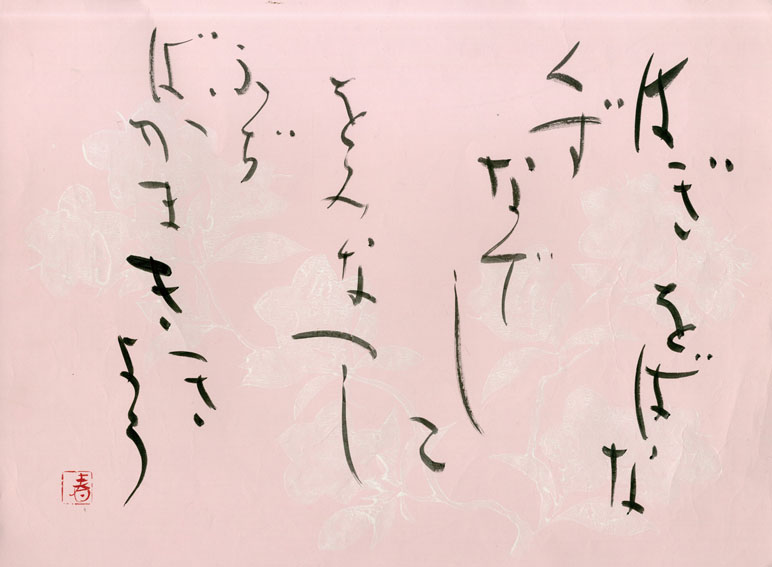 はぎ をばな
くず
なでしこ
をみなへし
ふぢ
ばかま ききよう
春